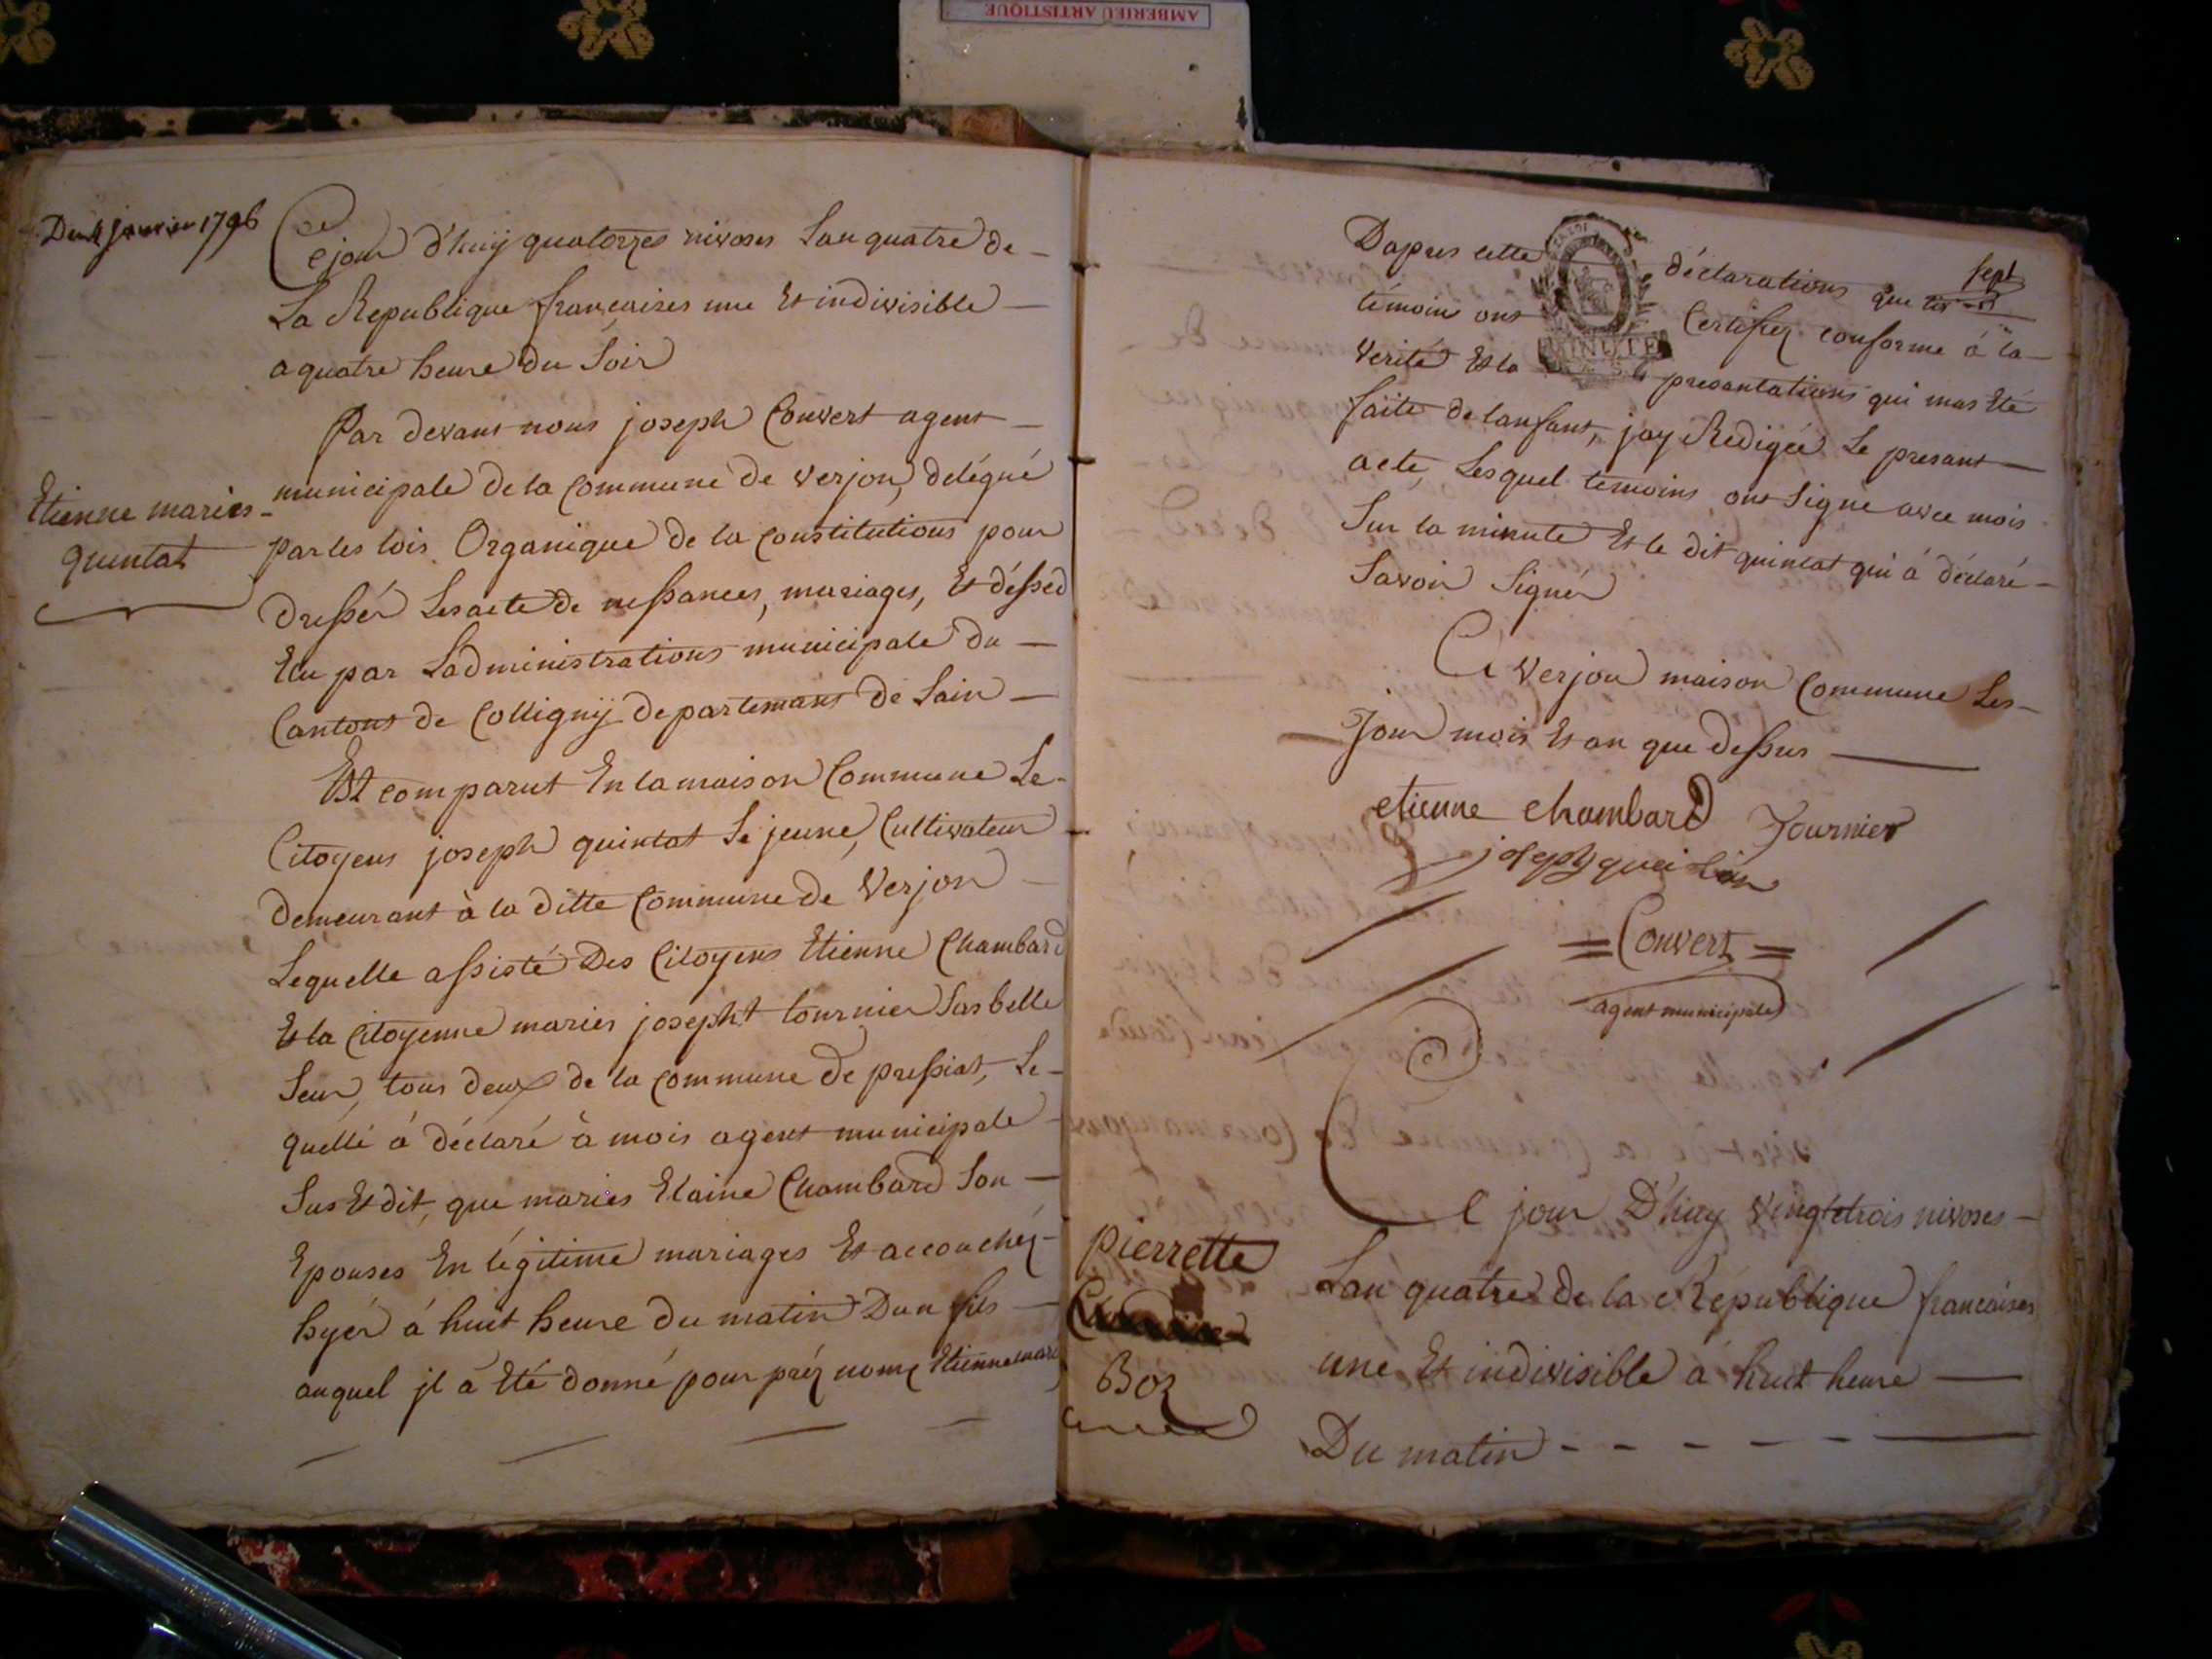 AMBERIEU ARTISTIQUE
Du 4 janvier 1796
Etienne maries
quintat
Ce jour d'huij quatorzes nivoses Lan quatre de
La Republique francaises une Et indivisible
a quatre heure du Soir
Par devant nous joseph Convert agent
municipale de la Commune de Verjon, délégué
par les lois Organique de la Constitutions pour
dressér Les acte de nessances, mariages, Et désséd
Elu par Ladministrations municipale du
Cantons de Colligny departemans de Lain
Est comparut En la maison Commune Le
Citoyens joseph quintat Le jeune, Cultivateur
demeurant à la ditte Commune de Verjon
Lequelle assisté Des Citoyens Etienne Chambard
Et la Citoyenne maries josepht tournier Sas belle
Seur, tous deux de la Commune de pressiat, Le
quelle à déclaré à mois agent municipale
Sus Et dit, que maries Elaine Chambard Son
Epouses En légitime mariages Et accouchéz
hyér à huit heure du matin Dun fils
auquel jl à Eté donné pour préz nomz Etienne marie
sept
Dapres cette déclarations que
témoin ont Certifiez conforme à la
MINUTE
Verité Et la presantations qui mas Eté
faite de lanfant, jay Redigée Le presant
acte, Lesquel temoins ont Signe avec mois
Sur la minute Et le dit quintat qui à déclaré
Savoir Signér
A Verjon maison Commune Les
Jour mois Et an que dessus
etienne chambard
Tournier
joseph
= Convert =
agent municipale
Ce jour D'huy vingt trois nivoses
Lan quatre de la République francaises
une Et indivisible à huit heure
Du matin
pierrette
Boz